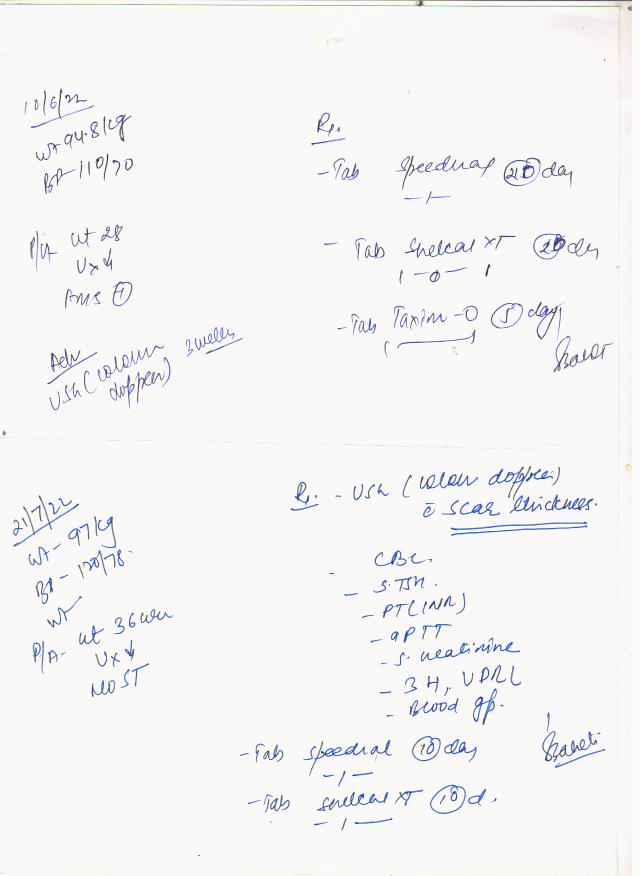 10/6/22
Wt 94.8 kg
BP - 110/70
P/A ut 28
Vx ↓
FHS +
Adv
USG (colour doppler) 3 weeks
Rx.
- Tab 20 day
- 1 -
- Tab Shelcal XT 20 day
1 - 0 - 1
- Tab Taxim - O 5 day
21/7/22
Wt - 97 kg
BP - 120/78.
Wt
P/A - ut 36 wk
Vx ↓
Rx. - USG (colour doppler)
c̄ scar thickness.
- CBC.
- S. TSH.
- PT (INR)
- aPTT
- S. creatinine
- 3 H, VDRL
- Blood gp.
- Tab 10 day
- 1 -
- Tab Shelcal XT 10 d.
- 1 -